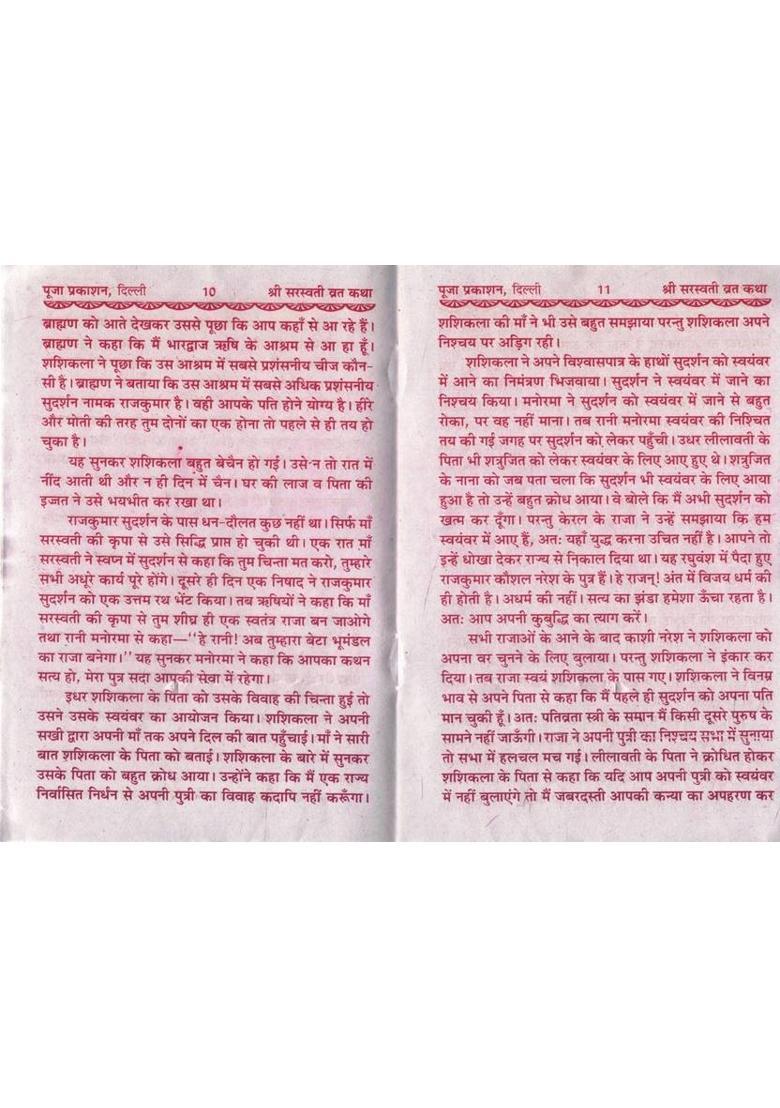 पूजा प्रकाशन, दिल्ली 10 श्री सरस्वती व्रत कथा
ब्राह्मण को आते देखकर उससे पूछा कि आप कहाँ से आ रहे हैं।
ब्राह्मण ने कहा कि मैं भारद्वाज ऋषि के आश्रम से आ हा हूँ।
शशिकला ने पूछा कि उस आश्रम में सबसे प्रशंसनीय चीज कौन-
सी है। ब्राह्मण ने बताया कि उस आश्रम में सबसे अधिक प्रशंसनीय
सुदर्शन नामक राजकुमार है। वही आपके पति होने योग्य है। हीरे
और मोती की तरह तुम दोनों का एक होना तो पहले से ही तय हो
चुका है।
यह सुनकर शशिकला बहुत बेचैन हो गई। उसे न तो रात में
नींद आती थी और न ही दिन में चैन। घर की लाज व पिता की
इज्जत ने उसे भयभीत कर रखा था।
राजकुमार सुदर्शन के पास धन-दौलत कुछ नहीं था। सिर्फ माँ
सरस्वती की कृपा से उसे सिद्धि प्राप्त हो चुकी थी। एक रात माँ
सरस्वती ने स्वप्न में सुदर्शन से कहा कि तुम चिन्ता मत करो, तुम्हारे
सभी अधूरे कार्य पूरे होंगे। दूसरे ही दिन एक निषाद ने राजकुमार
सुदर्शन को एक उत्तम रथ भेंट किया। तब ऋषियों ने कहा कि माँ
सरस्वती की कृपा से तुम शीघ्र ही एक स्वतंत्र राजा बन जाओगे
तथा रानी मनोरमा से कहा—‘‘हे रानी! अब तुम्हारा बेटा भूमंडल
का राजा बनेगा।’’ यह सुनकर मनोरमा ने कहा कि आपका कथन
सत्य हो, मेरा पुत्र सदा आपकी सेवा में रहेगा।
इधर शशिकला के पिता को उसके विवाह की चिन्ता हुई तो
उसने उसके स्वयंवर का आयोजन किया। शशिकला ने अपनी
सखी द्वारा अपनी माँ तक अपने दिल की बात पहुँचाई। माँ ने सारी
बात शशिकला के पिता को बताई। शशिकला के बारे में सुनकर
उसके पिता को बहुत क्रोध आया। उन्होंने कहा कि मैं एक राज्य
निर्वासित निर्धन से अपनी पुत्री का विवाह कदापि नहीं करूँगा।
पूजा प्रकाशन, दिल्ली 11 श्री सरस्वती व्रत कथा
शशिकला की माँ ने भी उसे बहुत समझाया परन्तु शशिकला अपने
निश्चय पर अड़िग रही।
शशिकला ने अपने विश्वासपात्र के हाथों सुदर्शन को स्वयंवर
में आने का निमंत्रण भिजवाया। सुदर्शन ने स्वयंवर में जाने का
निश्चय किया। मनोरमा ने सुदर्शन को स्वयंवर में जाने से बहुत
रोका, पर वह नहीं माना। तब रानी मनोरमा स्वयंवर की निश्चित
तय की गई जगह पर सुदर्शन को लेकर पहुँची। उधर लीलावती के
पिता भी शत्रुजित को लेकर स्वयंवर के लिए आए हुए थे। शत्रुजित
के नाना को जब पता चला कि सुदर्शन भी स्वयंवर के लिए आया
हुआ है तो उन्हें बहुत क्रोध आया। वे बोले कि मैं अभी सुदर्शन को
खत्म कर दूँगा। परन्तु केरल के राजा ने उन्हें समझाया कि हम
स्वयंवर में आए हैं, अतः यहाँ युद्ध करना उचित नहीं है। आपने तो
इन्हें धोखा देकर राज्य से निकाल दिया था। यह रघुवंश में पैदा हुए
राजकुमार कौशल नरेश के पुत्र हैं। हे राजन्! अंत में विजय धर्म की
ही होती है। अधर्म की नहीं। सत्य का झंडा हमेशा ऊँचा रहता है।
अतः आप अपनी कुबुद्धि का त्याग करें।
सभी राजाओं के आने के बाद काशी नरेश ने शशिकला को
अपना वर चुनने के लिए बुलाया। परन्तु शशिकला ने इंकार कर
दिया। तब राजा स्वयं शशिकला के पास गए। शशिकला ने विनम्र
भाव से अपने पिता से कहा कि मैं पहले ही सुदर्शन को अपना पति
मान चुकी हूँ। अतः पतिव्रता स्त्री के समान मैं किसी दूसरे पुरुष के
सामने नहीं जाऊँगी। राजा ने अपनी पुत्री का निश्चय सभा में सुनाया
तो सभा में हलचल मच गई। लीलावती के पिता ने क्रोधित होकर
शशिकला के पिता से कहा कि यदि आप अपनी पुत्री को स्वयंवर
में नहीं बुलाएंगे तो मैं जबरदस्ती आपकी कन्या का अपहरण कर